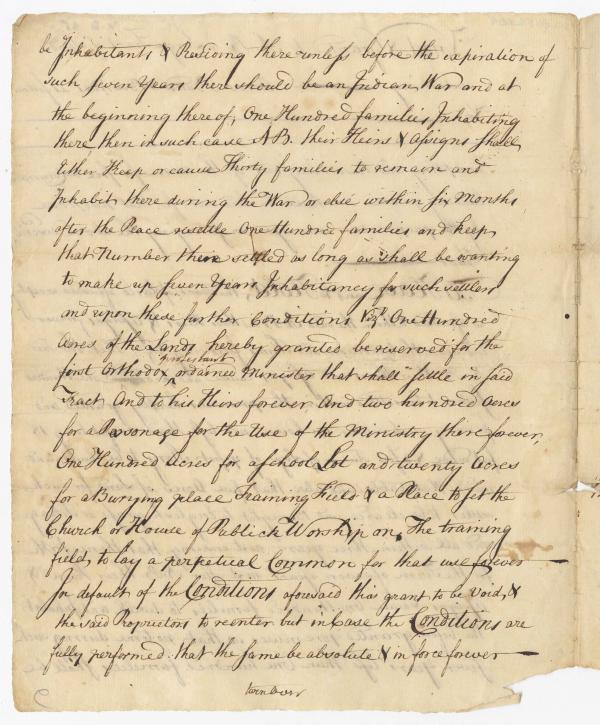 be Inhabitants & Residing there unless before the expiration of
such seven Years there should be an Indian War and at
the beginning thereof, One Hundred families Inhabiting
there, then in such case A B. their Heirs & Assigns shall
Either Keep or cause Thirty families to remain and
Inhabit there during the War or else within six Months
after the Peace resettle One Hundred families and keep
that Number there settled as long as shall be wanting
to make up seven Years Inhabitancy for such settlers
and upon these further Conditions Vizt. One Hundred
Acres of the Lands hereby granted be reserved for the
protestant
first Orthodox ^ ordained Minister that shall settle in said
Tract And to his Heirs forever And two hundred Acres
for a Parsonage for the Use of the Ministry there forever,
One Hundred Acres for a school Lot and twenty Acres
for a Burying place Training Field & a Place to Set the
Church or House of Publick Worship on, The training
field, to lay a perpetual Common for that use forever
In default of the Conditions aforesaid this grant to be Void, &
the said Proprietors to reenter but in Case the Conditions are
fully performed that the same be absolute & in force forever
turn over